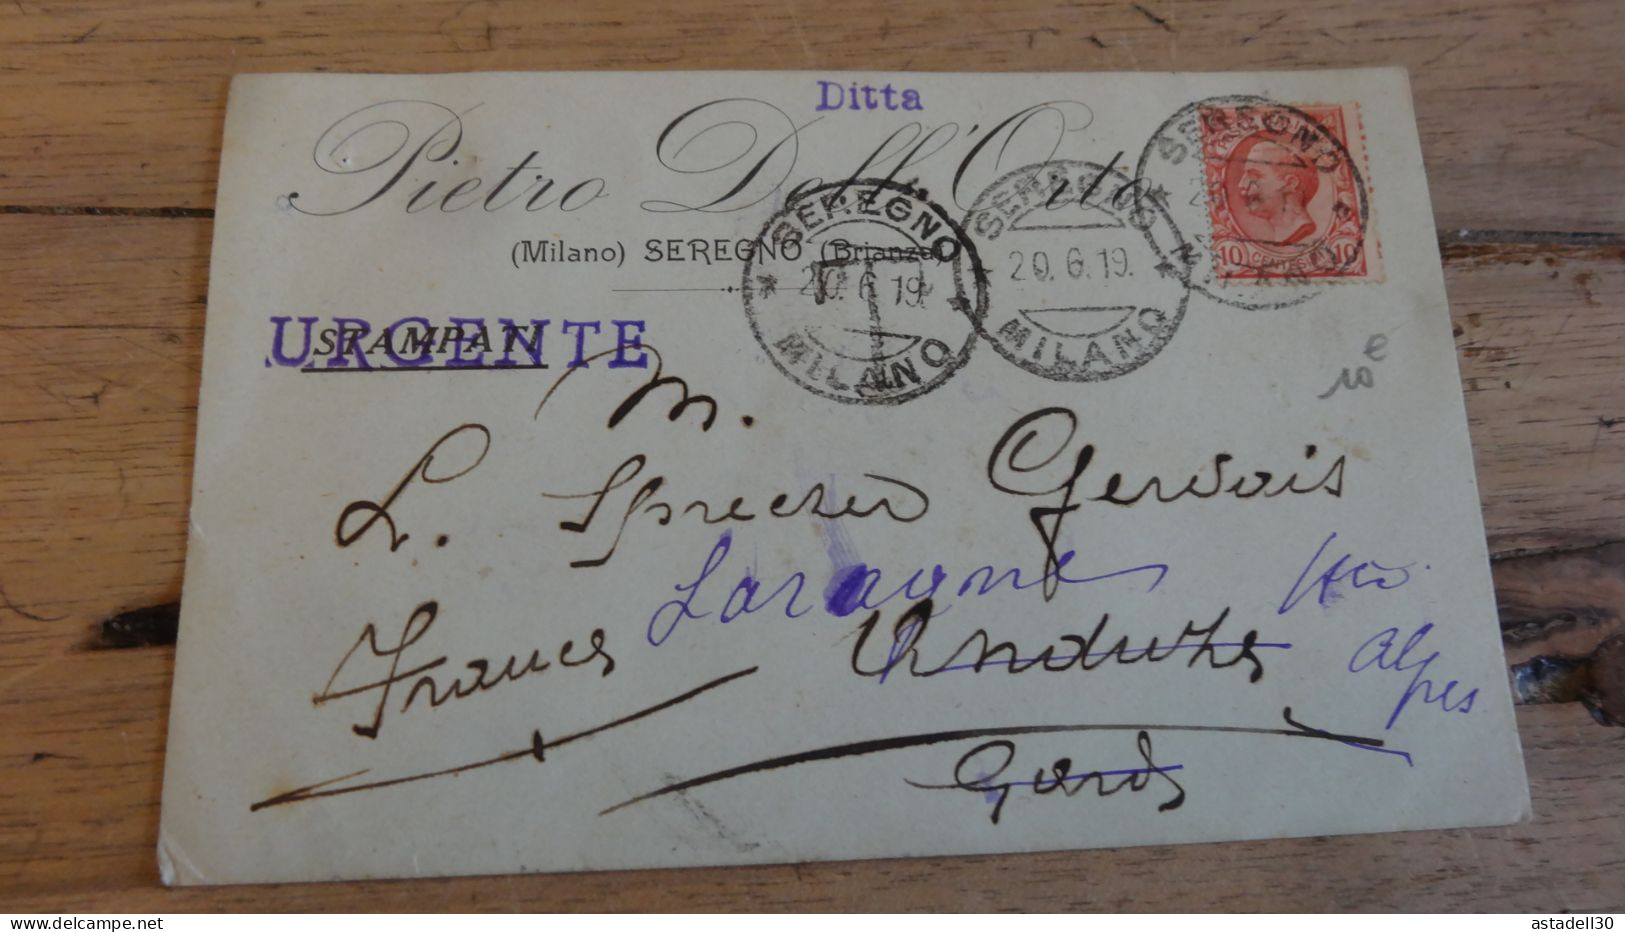 Ditta
Pietro Dell'Orto
(Milano) SEREGNO (Brianza)
URGENTE
STAMPATI
SEREGNO
20.6.19
MILANO
T
SEREGNO
20.6.19.
MILANO
SEREGNO
10 CENTESIMI 10
10 e
M.
L. Sprecher Gervais
Laragne Htes
France Anduze
Alpes
Gard
delcampe.net
astadell30